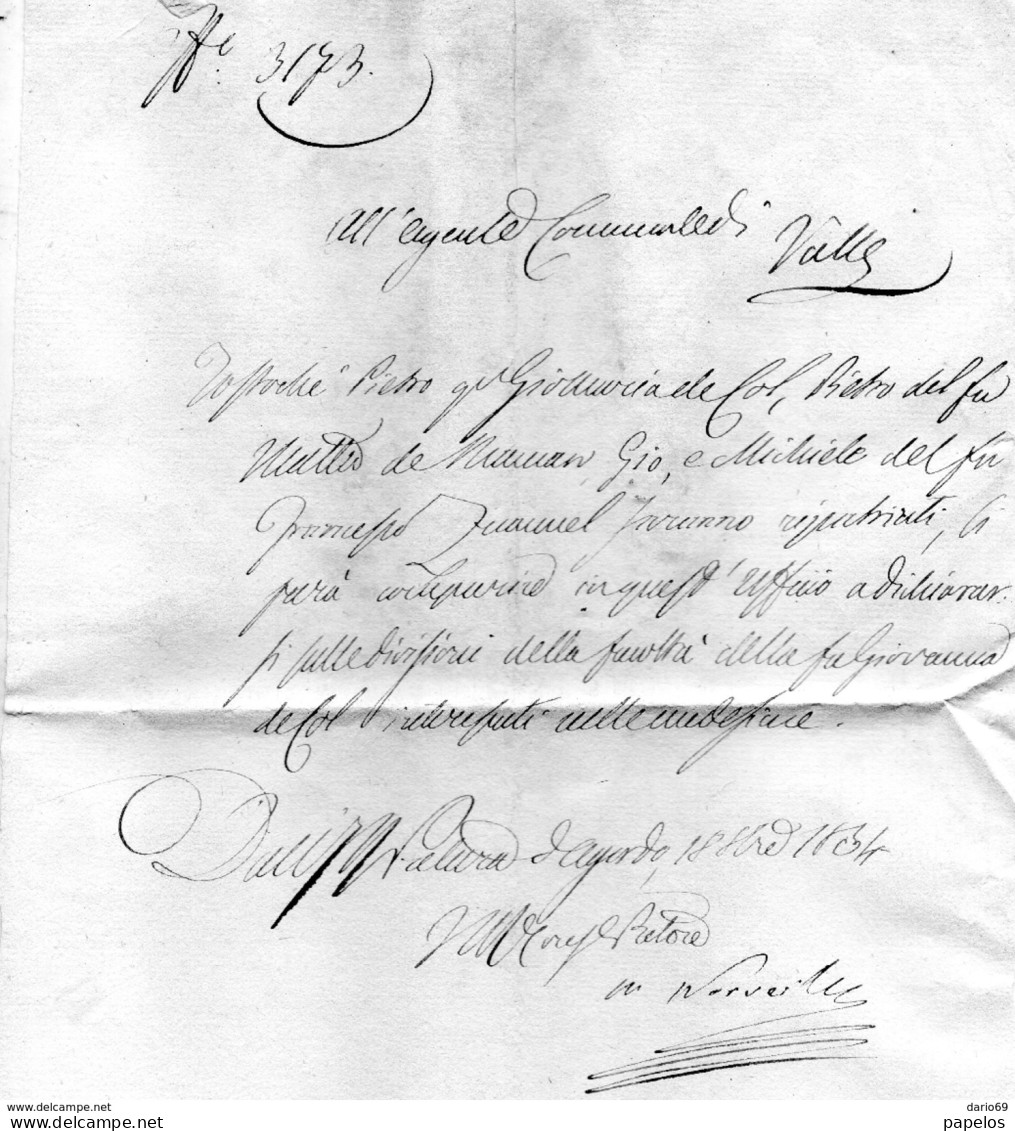 N.º 3173.
All'Agente Comunale di
Valle
Tostochè Pietro q.m Gio Maria de Col, Pietro del fu
Matteo de Naman, Gio, e Michiele del fu
Francesco Zuanuel saranno ripatriati, li
farà comparire in quest'Ufficio a dichiarar-
si sulle divisioni della facoltà della fu Giovanna
de Col interessati nelle medesime.
Dall' Pretura d'Agordo, 18 8bre 1834
Pretore
www.delcampe.net
dario69
papelos